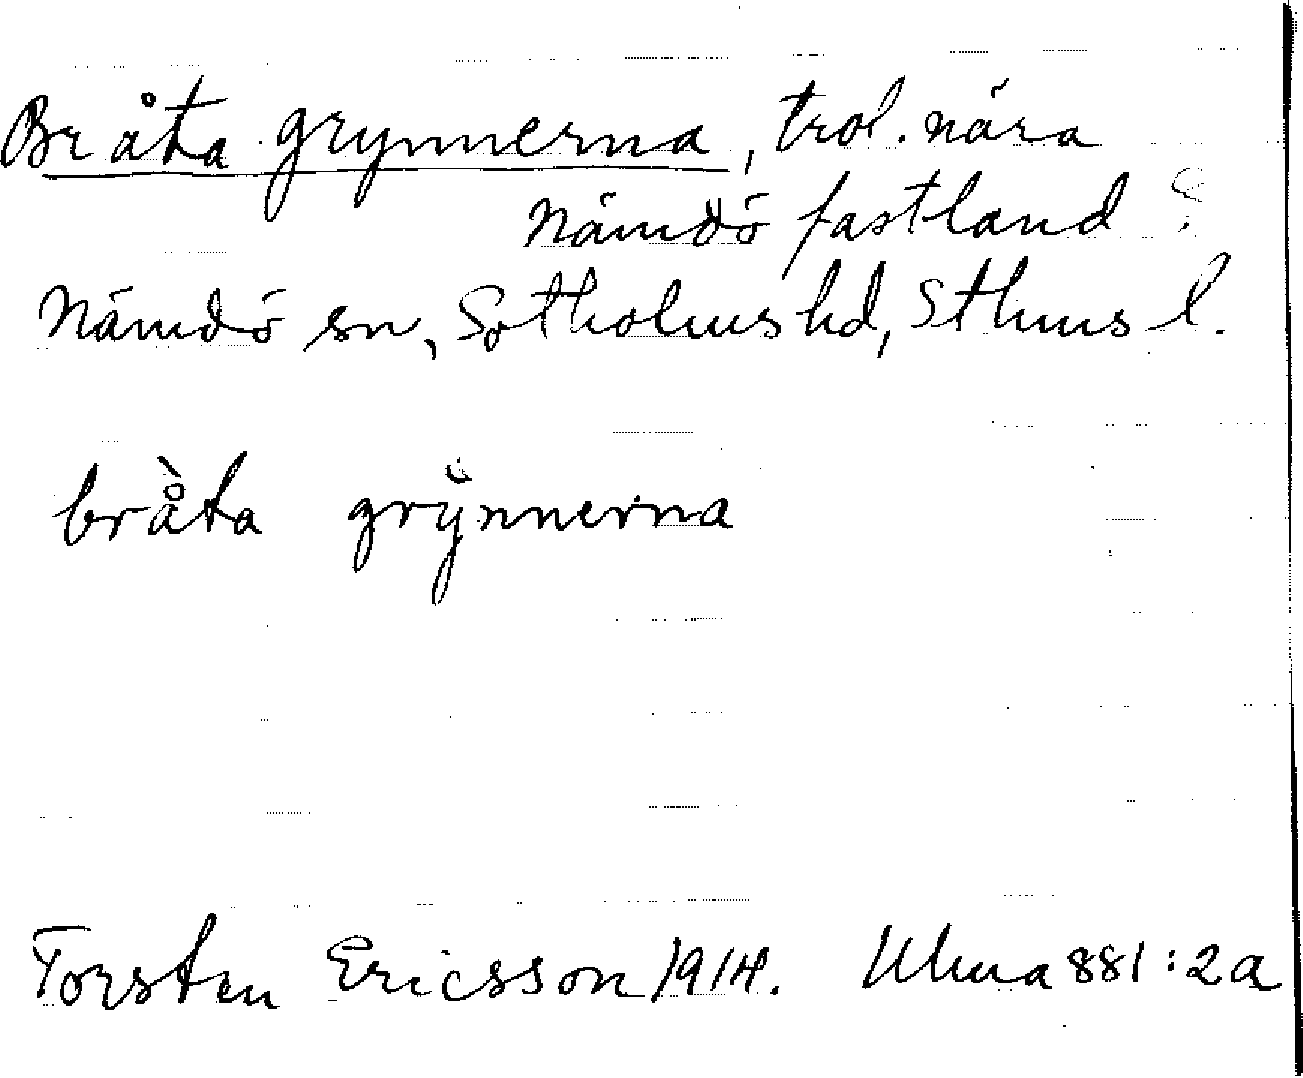 Bråta grynnerna, trol. nära
Nämdö fastland ?
Nämdö sn, Sotholms hd, Sthms l.
bråta grynnerna
Torsten Ericsson 1914. Ulma 881:2a